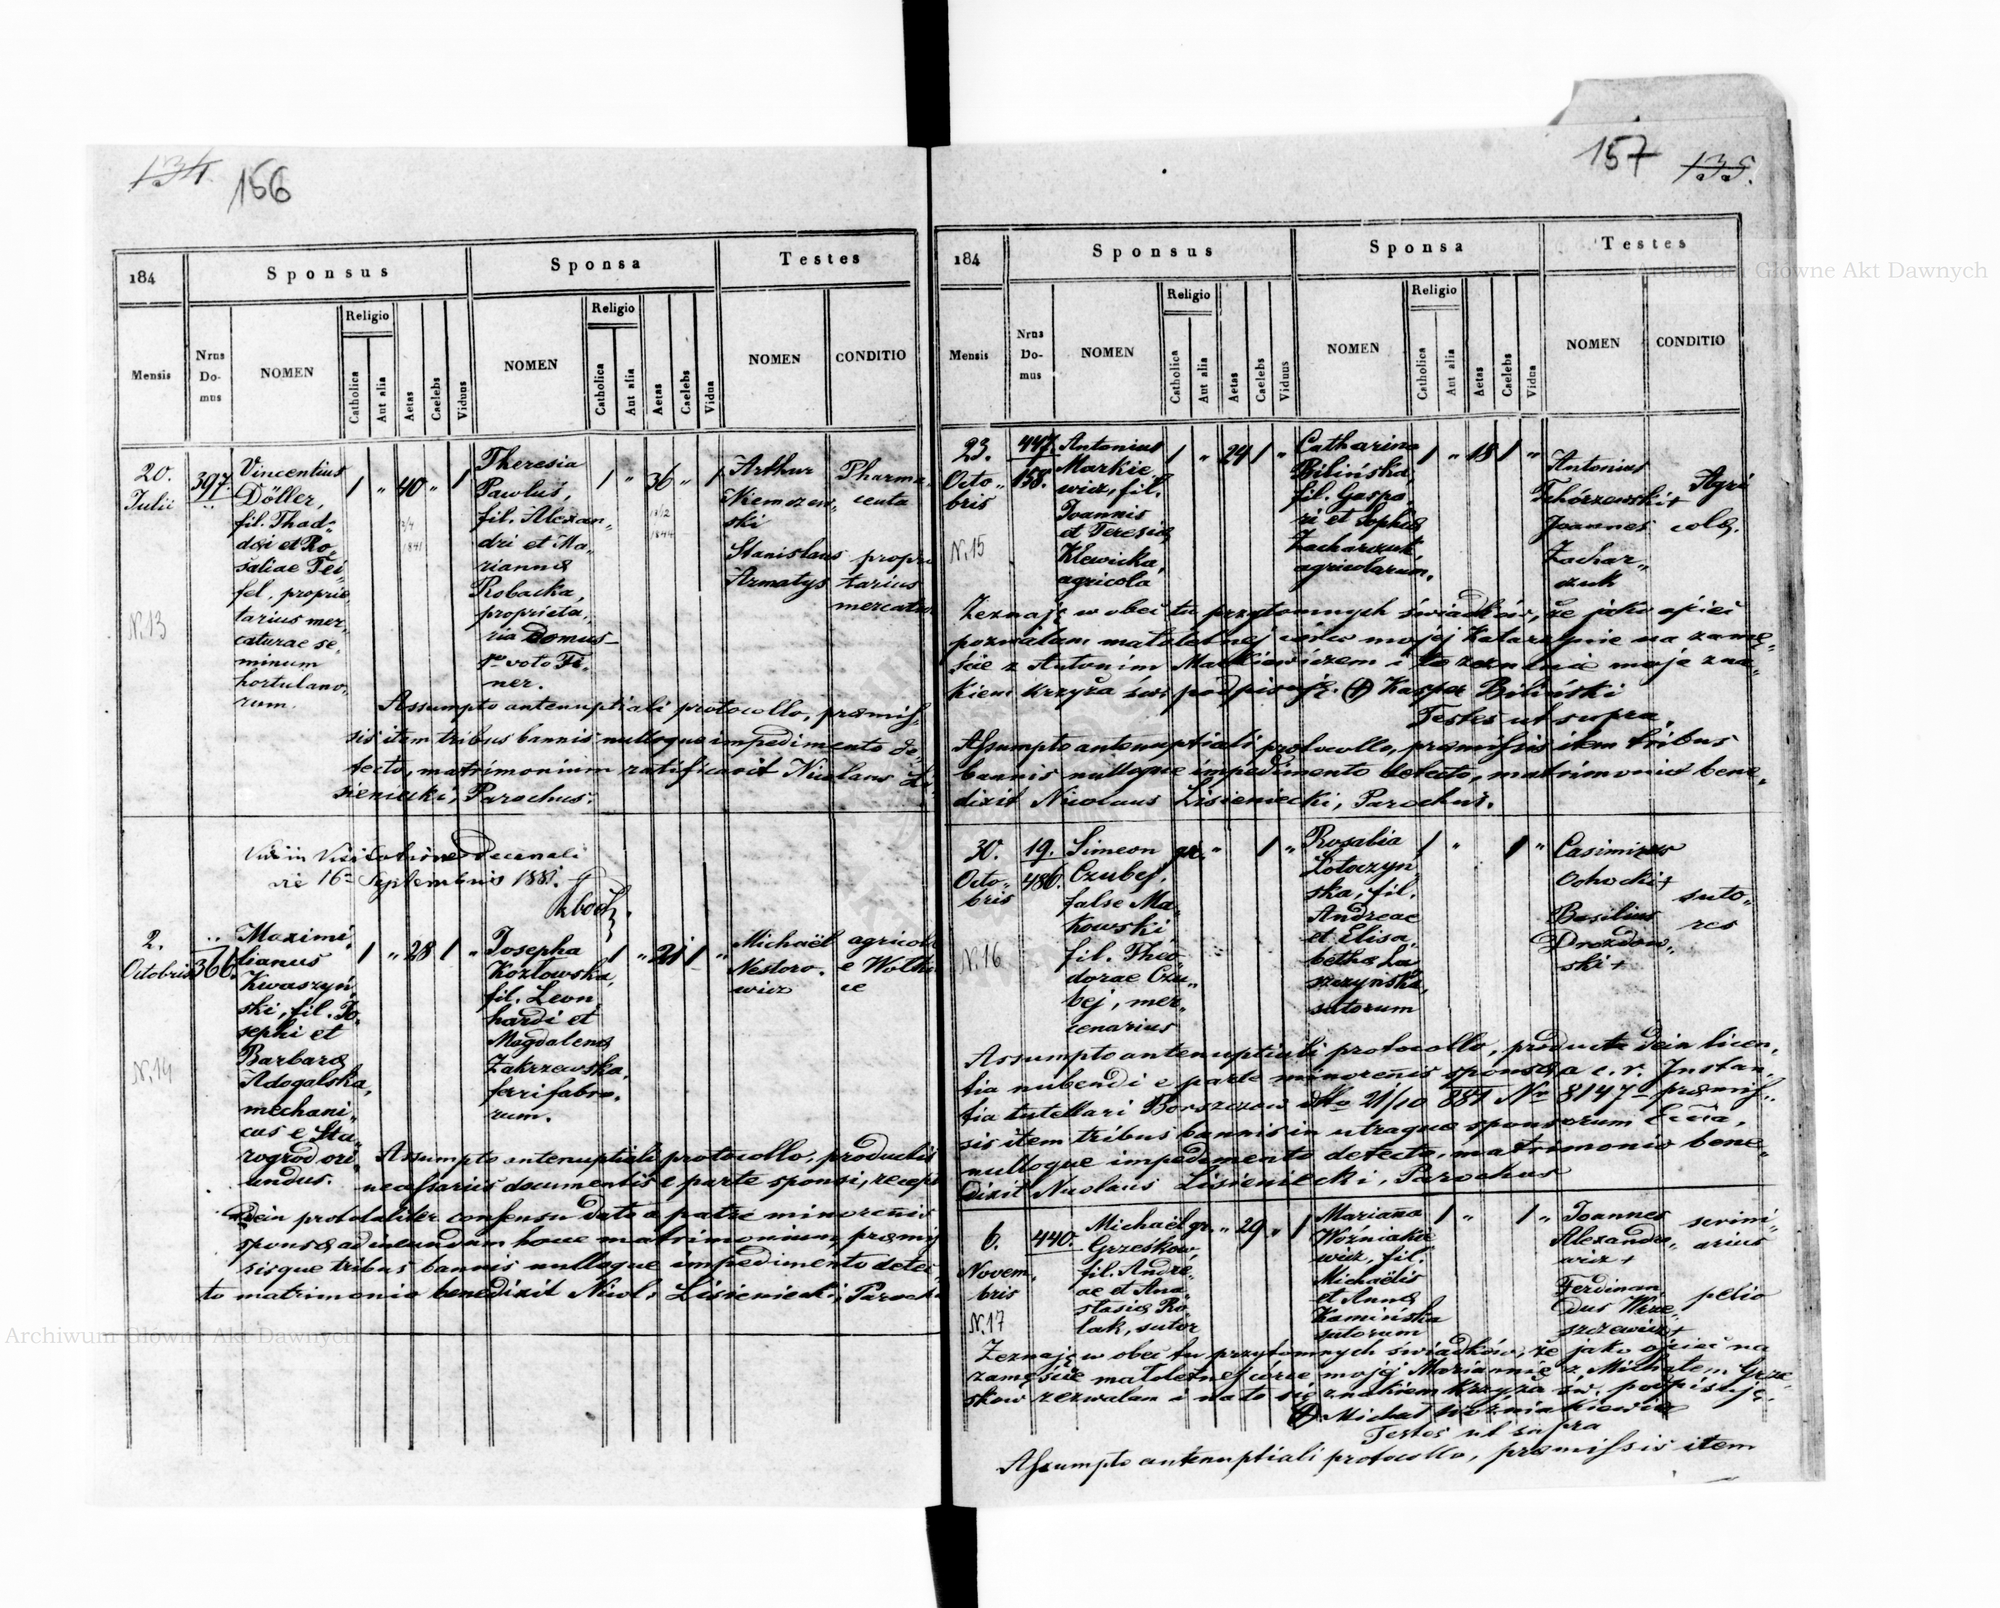 134.
156
184
Sponsus
Sponsa
Testes
Mensis
Nrus
Do-
mus
NOMEN
Religio
Catholica
Aut alia
Aetas
Caelebs
Viduus
NOMEN
Religio
Catholica
Aut alia
Aetas
Caelebs
Vidua
NOMEN
CONDITIO
20.
Julii
N.13
397.
Vincentius
Döller,
fil. Thad-
dæi et Ro-
saliae Tei-
fel, proprie-
tarius mer-
caturae se-
minum
hortulano-
rum.
1 " 40 " 1
Theresia
Pawluś,
fil. Alexan-
dri et Ma-
riannæ
Robacka,
proprieta-
ria domus
1mo voto Fi-
ner.
1 " 36 " 1
Arthur
Niemczew-
ski
Stanislaus
Armatys
Pharma-
ceuta
propri
tarius
mercatu
Assumpto antenuptiali protocollo, præmis-
sis item tribus bannis nulloque impedimento de-
tecto, matrimonium ratificavit Nicolaus Li-
sieniecki, Parochus.
Visi in Visitatione Decanali
die 16 Septembris 1881.
2.
Octobris
N.14
366.
Maximi-
lianus
Kwaszyń-
ski, fil. Jo-
sephi et
Barbaræ
Adogalska,
mechani-
cus e Sta-
rogrod ori-
undus.
1 " 28 1 "
Josepha
Kozłowska,
fil. Leon-
hardi et
Magdalenæ
Zakrzewska,
ferrifabro-
rum.
1 " 21 1 "
Michaël
Nestoro-
wicz
agricola
e Wolko
ce
Assumpto antenuptiali protocollo, productis
necessariis documentis e parte sponsi, recep
dein protocolaliter consensu dato a patre minorenis
sponsæ ad ineundum hocce matrimonium, præmis
sisque tribus bannis nulloque impedimento detec-
to matrimonio benedixit Nicol: Lisieniecki, Paroch
157
135.
184
Sponsus
Sponsa
Testes
Mensis
Nrus
Do-
mus
NOMEN
Religio
Catholica
Aut alia
Aetas
Caelebs
Viduus
NOMEN
Religio
Catholica
Aut alia
Aetas
Caelebs
Vidua
NOMEN
CONDITIO
23.
Octo-
bris
N.15
447.
158.
Antonius
Markie-
wicz, fil.
Joannis
et Teresiæ
Klewicka,
agricola
1 " 24 1 "
Catharina
Bilińska,
fil. Gaspa-
ri et Sophiæ
Zacharczuk
agricolarum.
1 " 18 1 "
Antonius
Tchórzewski+
Joannes
Zachar-
czuk
Agri
colæ.
Zeznaję w obec tu przytomnych świadków, że jako ojciec
pozwalam małoletnej córce mojej Katarzynie na zamę-
ście z Antonim Markiewiczem i to zeznanie moje zna-
kiem krzyża św. podpisuję. (+) Kasper Biliński
Testes ut supra.
Assumpto antenuptiali protocollo, præmissis item tribus
bannis nulloque impedimento detecto, matrimonio bene-
dixit Nicolaus Lisieniecki, Parochus.
30.
Octo-
bris
N.16
19.
486.
Simeon
Czubej,
false Ma-
kowski
fil. Theo-
dorae Czu-
bej, mer-
cenarius
gr. " 1 "
Rosalia
Łotoczyń-
ska, fil.
Andreae
et Elisa-
bethæ La
szczynska,
sutorum
1 " 1 "
Casimirus
Ochocki+
Basilius
Drozdow-
ski+
suto-
res
Assumpto antenuptiali protocollo, producta dein licen-
tia nubendi e parte minorenis sponsæ a c. r. Instan-
tia tutellari Borszczow dtto 21/10 881 Nro 8147 præmis-
sis item tribus bannis in utraque sponsorum Eccla,
nulloque impedimento detecto, matrimonio bene-
dixit Nicolaus Lisieniecki, Parochus
6.
Novem-
bris
N.17
440.
Michaël
Grześkow,
fil. Andre-
ae et Ana-
stasiæ Ro-
lak, sutor
gr. " 29 " 1
Marianna
Woźniakie-
wicz, fil.
Michaëlis
et Annæ
Kamińska
sutorum
1 " 1 "
Joannes
Alexandro-
wicz+
Ferdinan-
dus Wrze-
szczewicz+
scrini-
arius
pelio
Zeznaję w obec tu przytomnych świadków, że jako ojciec na
zamęście małoletnej córce mojej Mariannie z Michałem Grze-
śkow zezwalam i na to się znakiem krzyża św. podpisuję.
(+) Michał Woźniakiewicz
Testes ut supra
Assumpto antenuptiali protocollo, præmissis item
Archiwum Główne Akt Dawnych
Archiwum Główne Akt Dawnych